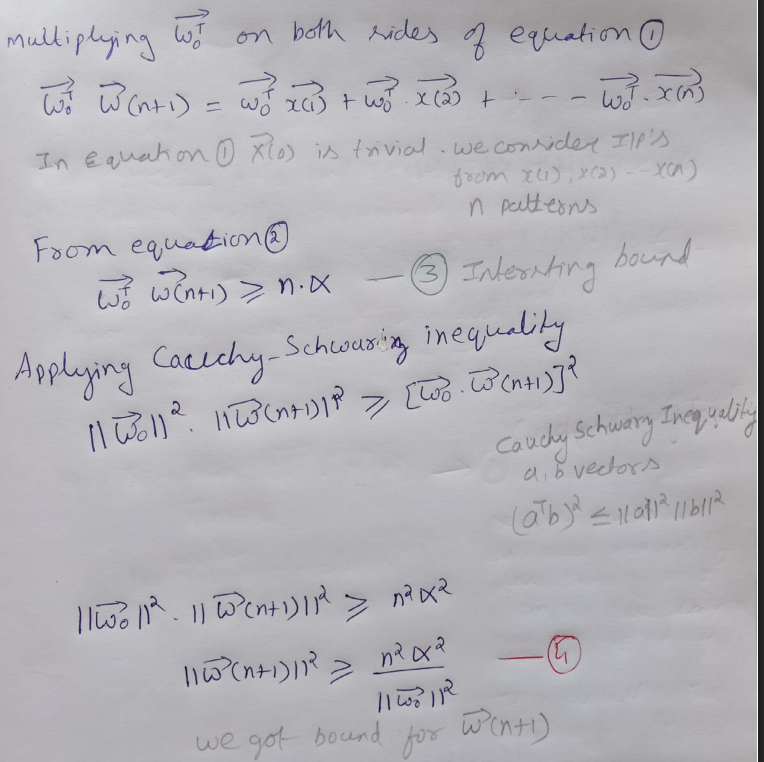 multiplying w₀ᵀ on both sides of equation ①
w₀ᵀ w(n+1) = w₀ᵀ x(1) + w₀ᵀ. x(2) + - - - - w₀ᵀ. x(n)
In Equation ① x(0) is trivial. we consider I/P's
from x(1), x(2) -- x(n)
n patterns
From equation ②
w₀ᵀ w(n+1) ≥ n.α — ③ Intersting bound
Applying Cauchy-Schwarz inequality
||w₀||². ||w(n+1)||² ≥ [w₀ . w(n+1)]²
Cauchy Schwarz Inequality
a, b vectors
(aᵀb)² ≤ ||a||² ||b||²
||w₀||². ||w(n+1)||² ≥ n²α²
||w(n+1)||² ≥ n²α² / ||w₀||² — ④
we got bound for w(n+1)